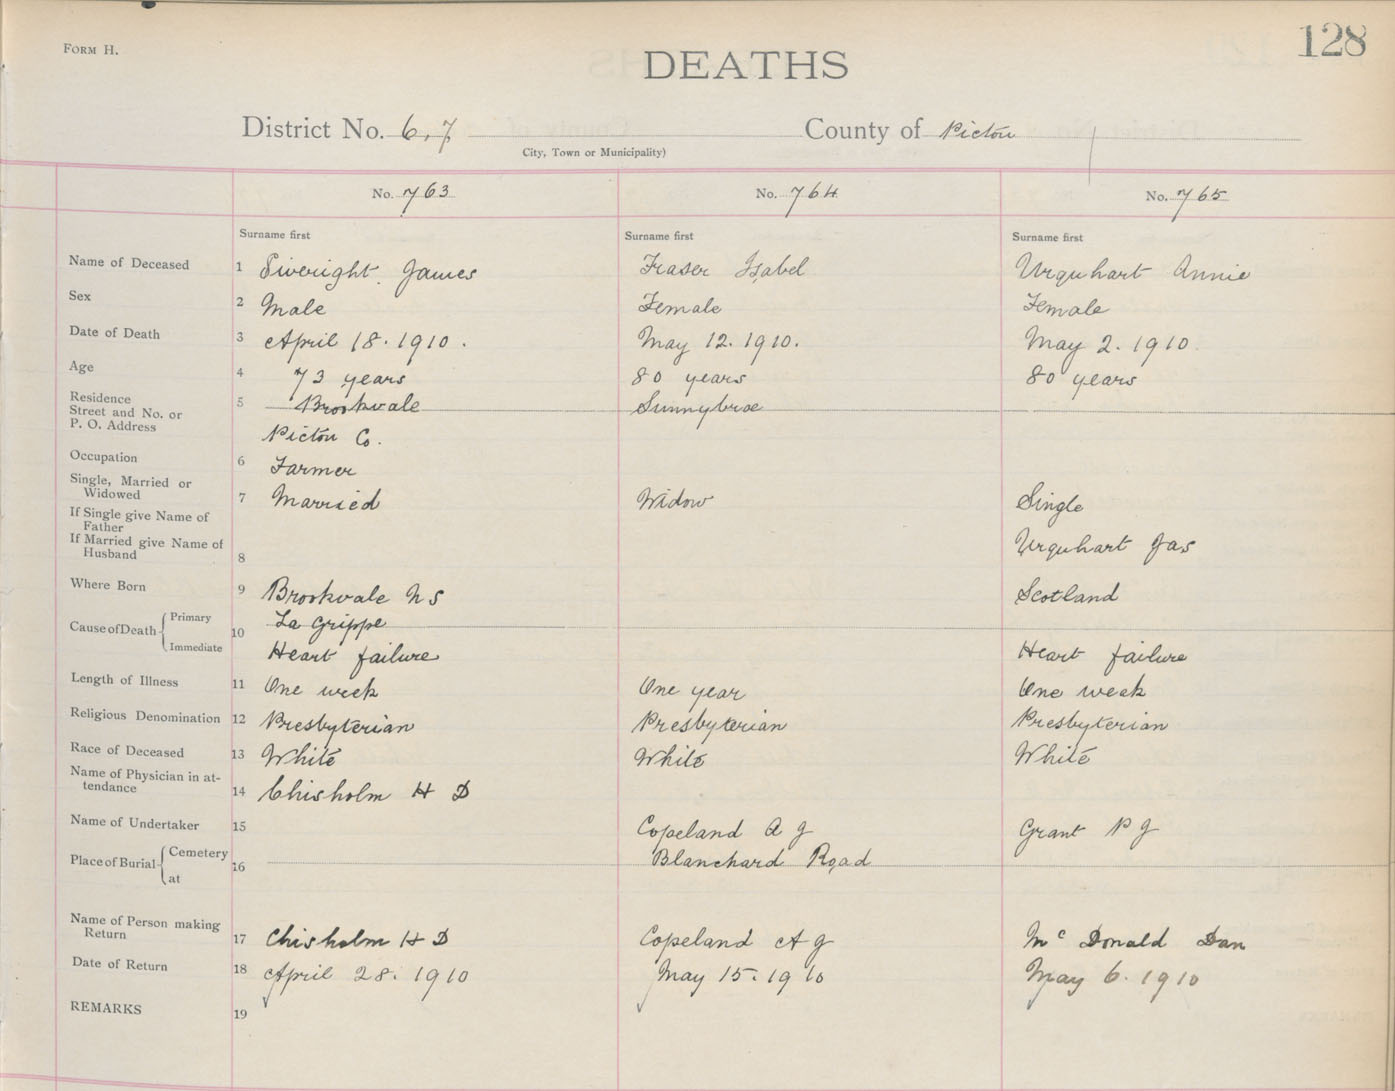 FORM H.
128
DEATHS
District No. 6,7 County of Pictou
City, Town or Municipality)
No. 763 No. 764 No. 765
Surname first Surname first Surname first
Name of Deceased 1 Siveright James Fraser Isabel Urquhart Annie
Sex 2 Male Female Female
Date of Death 3 April 18. 1910. May 12. 1910. May 2. 1910.
Age 4 73 years 80 years 80 years
Residence
Street and No. or 5 Brookvale Sunnybrae
P. O. Address
Pictou Co.
Occupation 6 Farmer
Single, Married or
Widowed 7 Married Widow Single
If Single give Name of
Father
If Married give Name of Urquhart Jas
Husband 8
Where Born 9 Brookvale N S Scotland
Cause of Death Primary 10 La Grippe
Immediate Heart failure Heart failure
Length of Illness 11 One week One year One week
Religious Denomination 12 Presbyterian Presbyterian Presbyterian
Race of Deceased 13 White White White
Name of Physician in at-
tendance 14 Chisholm H D
Name of Undertaker 15 Copeland A J Grant P J
Place of Burial Cemetery 16 Blanchard Road
at
Name of Person making
Return 17 Chisholm H D Copeland A J Mc Donald Dan
Date of Return 18 April 28. 1910 May 15. 1910 May 6. 1910
REMARKS 19